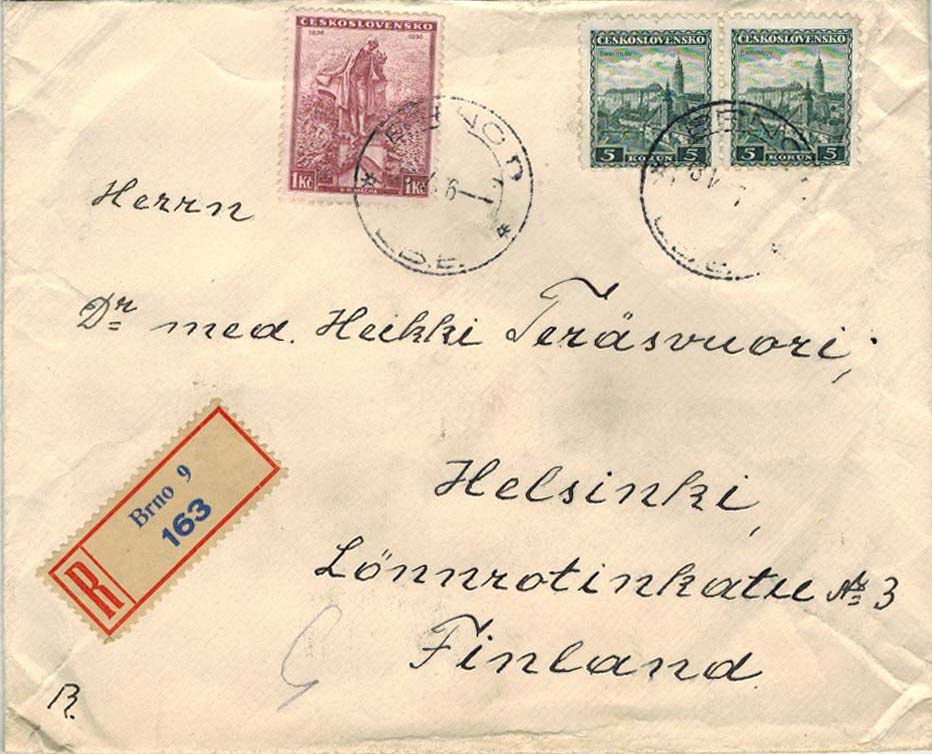 ČESKOSLOVENSKO
1836 1936
1Kč 1Kč
K.H.MÁCHA
ČESKOSLOVENSKO
5 KORUN 5
ČESKOSLOVENSKO
5 KORUN 5
Herrn
Dr med. Heikki Teräsvuori,
Helsinki,
Lönnrotinkatu Nr 3
Finland.
R
Brno 9
163
R.